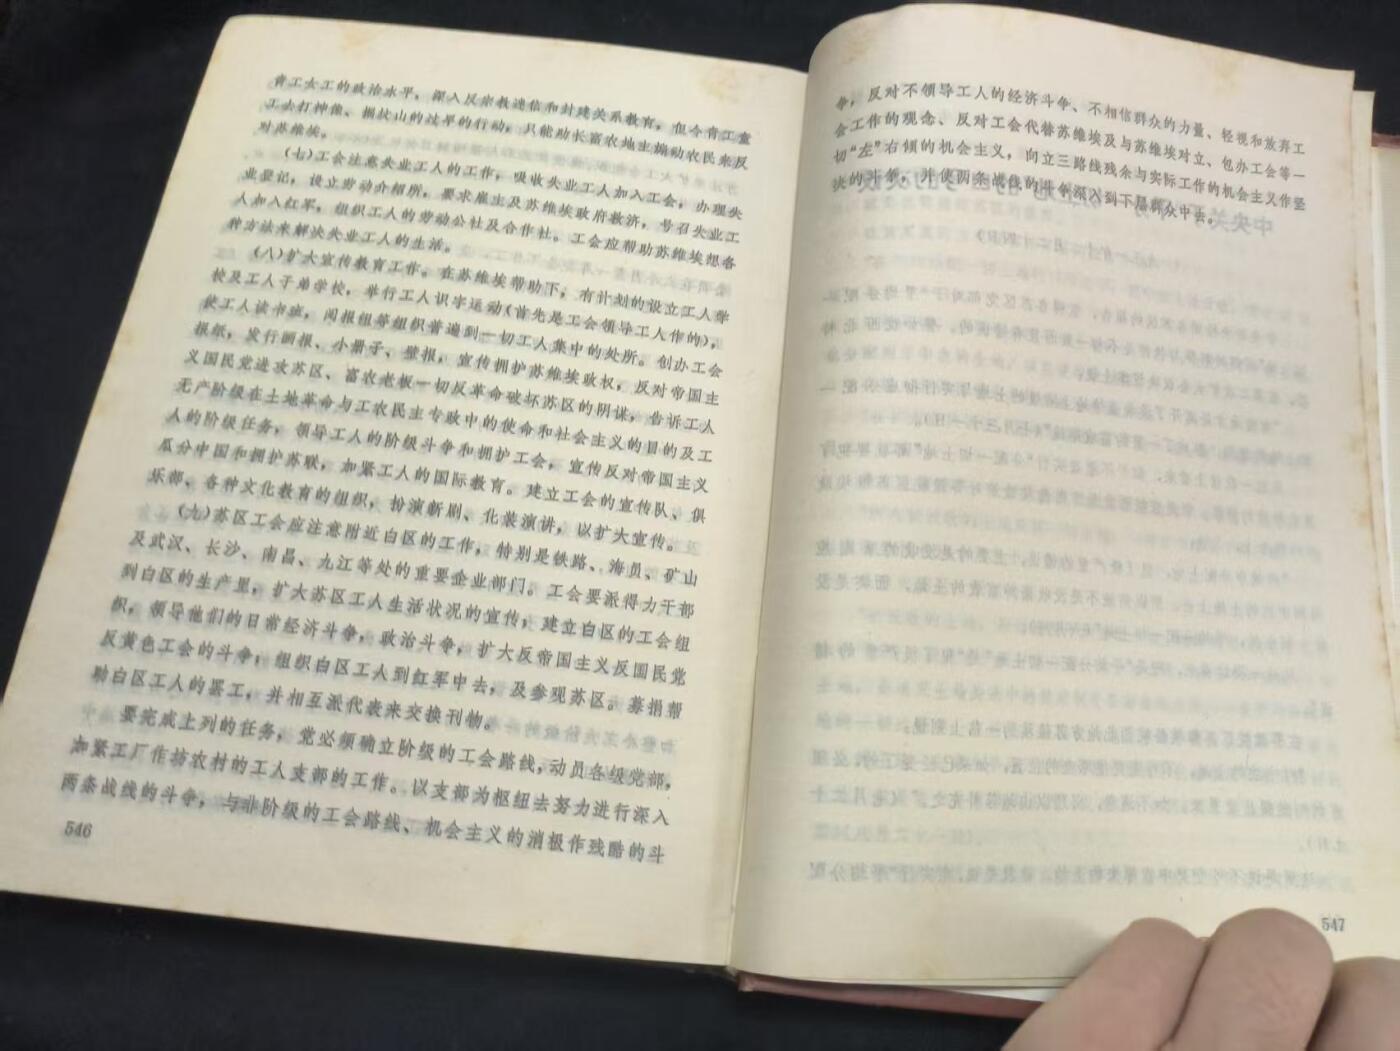 青工女工的政治水平，深入反宗教迷信和封建关系教育，但今青工童
工去打神像、捣扙山的过早的行动，只能助长富农地主煽动农民来反
对苏维埃。
（七）工会注意失业工人的工作，吸收失业工人加入工会，办理失
业登记，设立劳动介绍所，要求雇主及苏维埃政府救济，号召失业工
人加入红军，组织工人的劳动公社及合作社。工会应帮助苏维埃想各
种方法来解决失业工人的生活。
（八）扩大宣传教育工作。在苏维埃帮助下，有计划的设立工人学
校及工人子弟学校，举行工人识字运动（首先是工会领导工人作的），
使工人读书班，阅报组等组织普遍到一切工人集中的处所。创办工会
报纸，发行画报、小册子、壁报，宣传拥护苏维埃政权，反对帝国主
义国民党进攻苏区、富农老板一切反革命破坏苏区的阴谋，告诉工人
无产阶级在土地革命与工农民主专政中的使命和社会主义的目的及工
人的阶级任务，领导工人的阶级斗争和拥护工会，宣传反对帝国主义
瓜分中国和拥护苏联，加紧工人的国际教育。建立工会的宣传队、俱
乐部、各种文化教育的组织，扮演新剧、化装演讲，以扩大宣传。
（九）苏区工会应注意附近白区的工作，特别是铁路、海员、矿山
及武汉、长沙、南昌、九江等处的重要企业部门。工会要派得力干部
到白区的生产里，扩大苏区工人生活状况的宣传，建立白区的工会组
织，领导他们的日常经济斗争，政治斗争，扩大反帝国主义反国民党
反黄色工会的斗争，组织白区工人到红军中去，及参观苏区。募捐帮
助白区工人的罢工，并相互派代表来交换刊物。
要完成上列的任务，党必须确立阶级的工会路线，动员各级党部，
加紧工厂作坊农村的工人支部的工作。以支部为枢纽去努力进行深入
两条战线的斗争，与非阶级的工会路线、机会主义的消极作残酷的斗
546
争，反对不领导工人的经济斗争、不相信群众的力量、轻视和放弃工
会工作的观念、反对工会代替苏维埃及与苏维埃对立、包办工会等一
切“左”右倾的机会主义，向立三路线残余与实际工作的机会主义作坚
决的斗争，并使两条战线的斗争深入到下层群众中去。
547